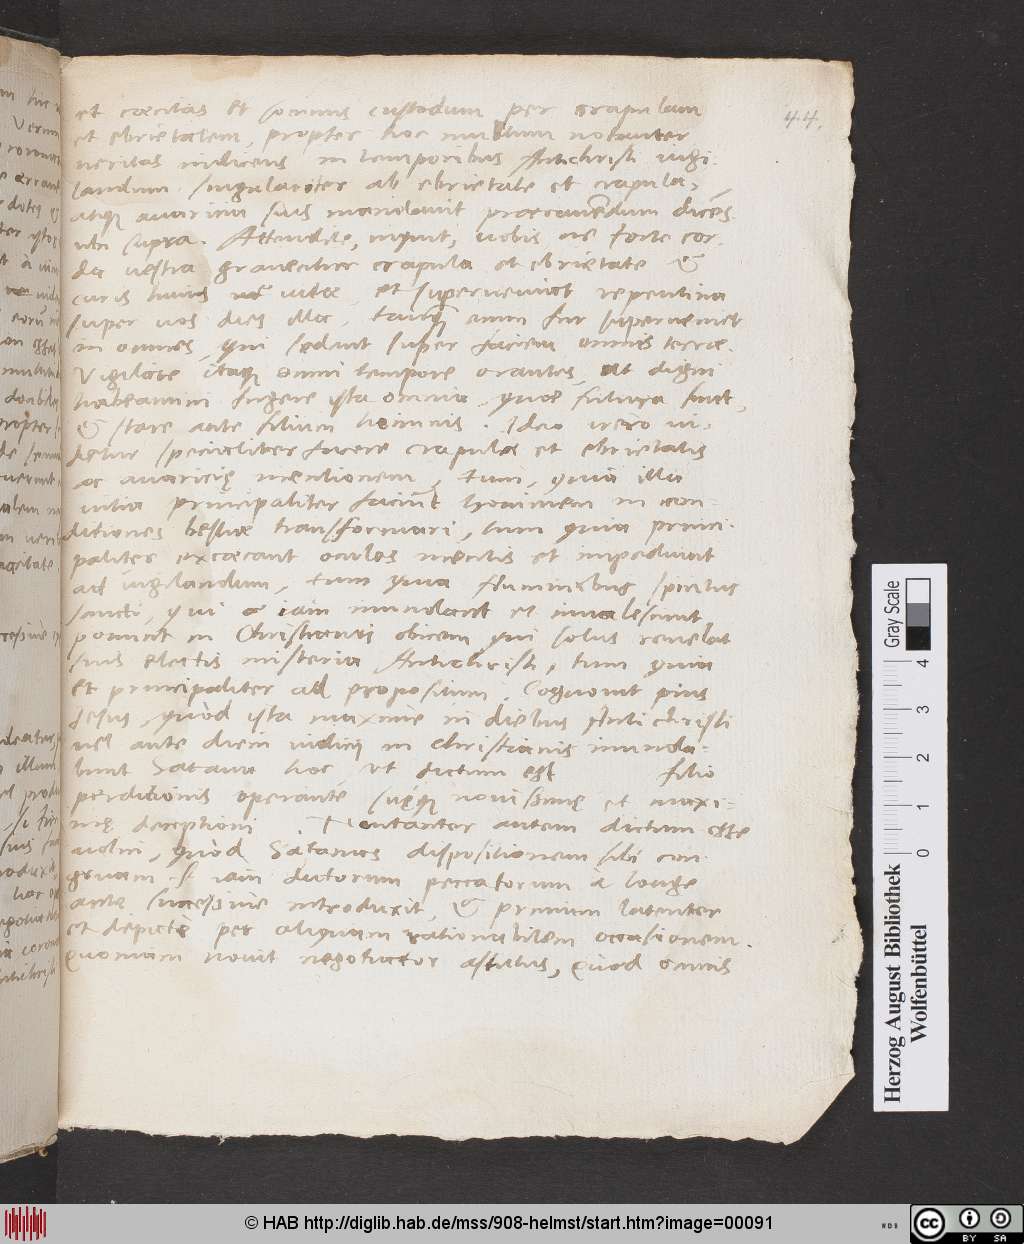 44.
et cæcitas et somnus custodum per crapulam
et ebrietatem, propter hoc multum notanter
veritas indicens in temporibus Antichristi vigi-
landum singulariter ab ebrietate et crapula,
atque avaricia suis mandavit præcavendum dicens
ubi supra. Attendite, inquit, vobis ne forte cor-
da vestra graventur crapula et ebrietate &
curis huius vitæ, et superveniat repentina
super vos dies illa, tanquam enim fur superveniet
in omnes, qui sedent super faciem omnis terræ.
Vigilate itaque omni tempore orantes, ut digni
habeamini fugere ista omnia, quæ futura sunt,
& stare ante filium hominis. Ideo vero vi-
detur specialiter facere crapulæ et ebrietatis
ac avariciæ mentionem, tum, quia illa
vitia principaliter faciunt hominem in con-
ditiones bestiæ transformari, tum quia princi-
paliter excæcant oculos mentis et impediunt
ad vigilandum, tum quia fluminibus spiritus
sancti, qui iam inundant et invalescunt
ponunt in Christianis obicem qui solus revelat
suis electis misteria Antichristi, tum quia
et principaliter ad propositum. Cognovit pius
Jesus, quòd ista maxime in diebus Antichristi
vel ante diem iudicij in christianis inunda-
bunt Satana hoc, ut dictum est filio
perditionis operante suæque novissimę et maxi-
mę deceptioni. Notanter autem dictum esse
volui, quòd Satanas dispositionem sibi con-
gruam iam dictorum peccatorum à longe
ante successive introduxit, & primum latenter
et depictè per aliquam rationabilem occasionem.
Quoniam novit negotiator astutus, quod omnis
Herzog August Bibliothek
Wolfenbüttel
Gray Scale
0 1 2 3 4
© HAB http://diglib.hab.de/mss/908-helmst/start.htm?image=00091
WDB
cc BY SA